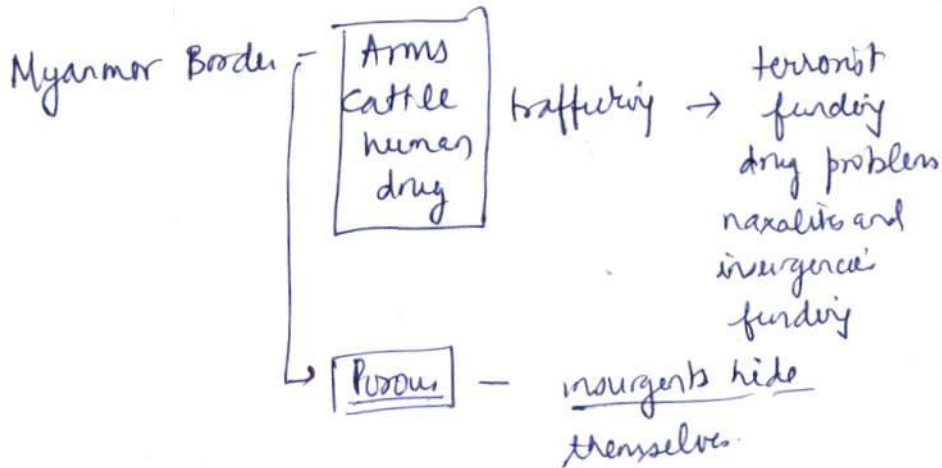 Myanmar Border - Arms
cattle
human
drug
trafficing → terrorist
funding
drug problem
naxalites and
insurgencies
funding
Porous - insurgents hide
themselves.